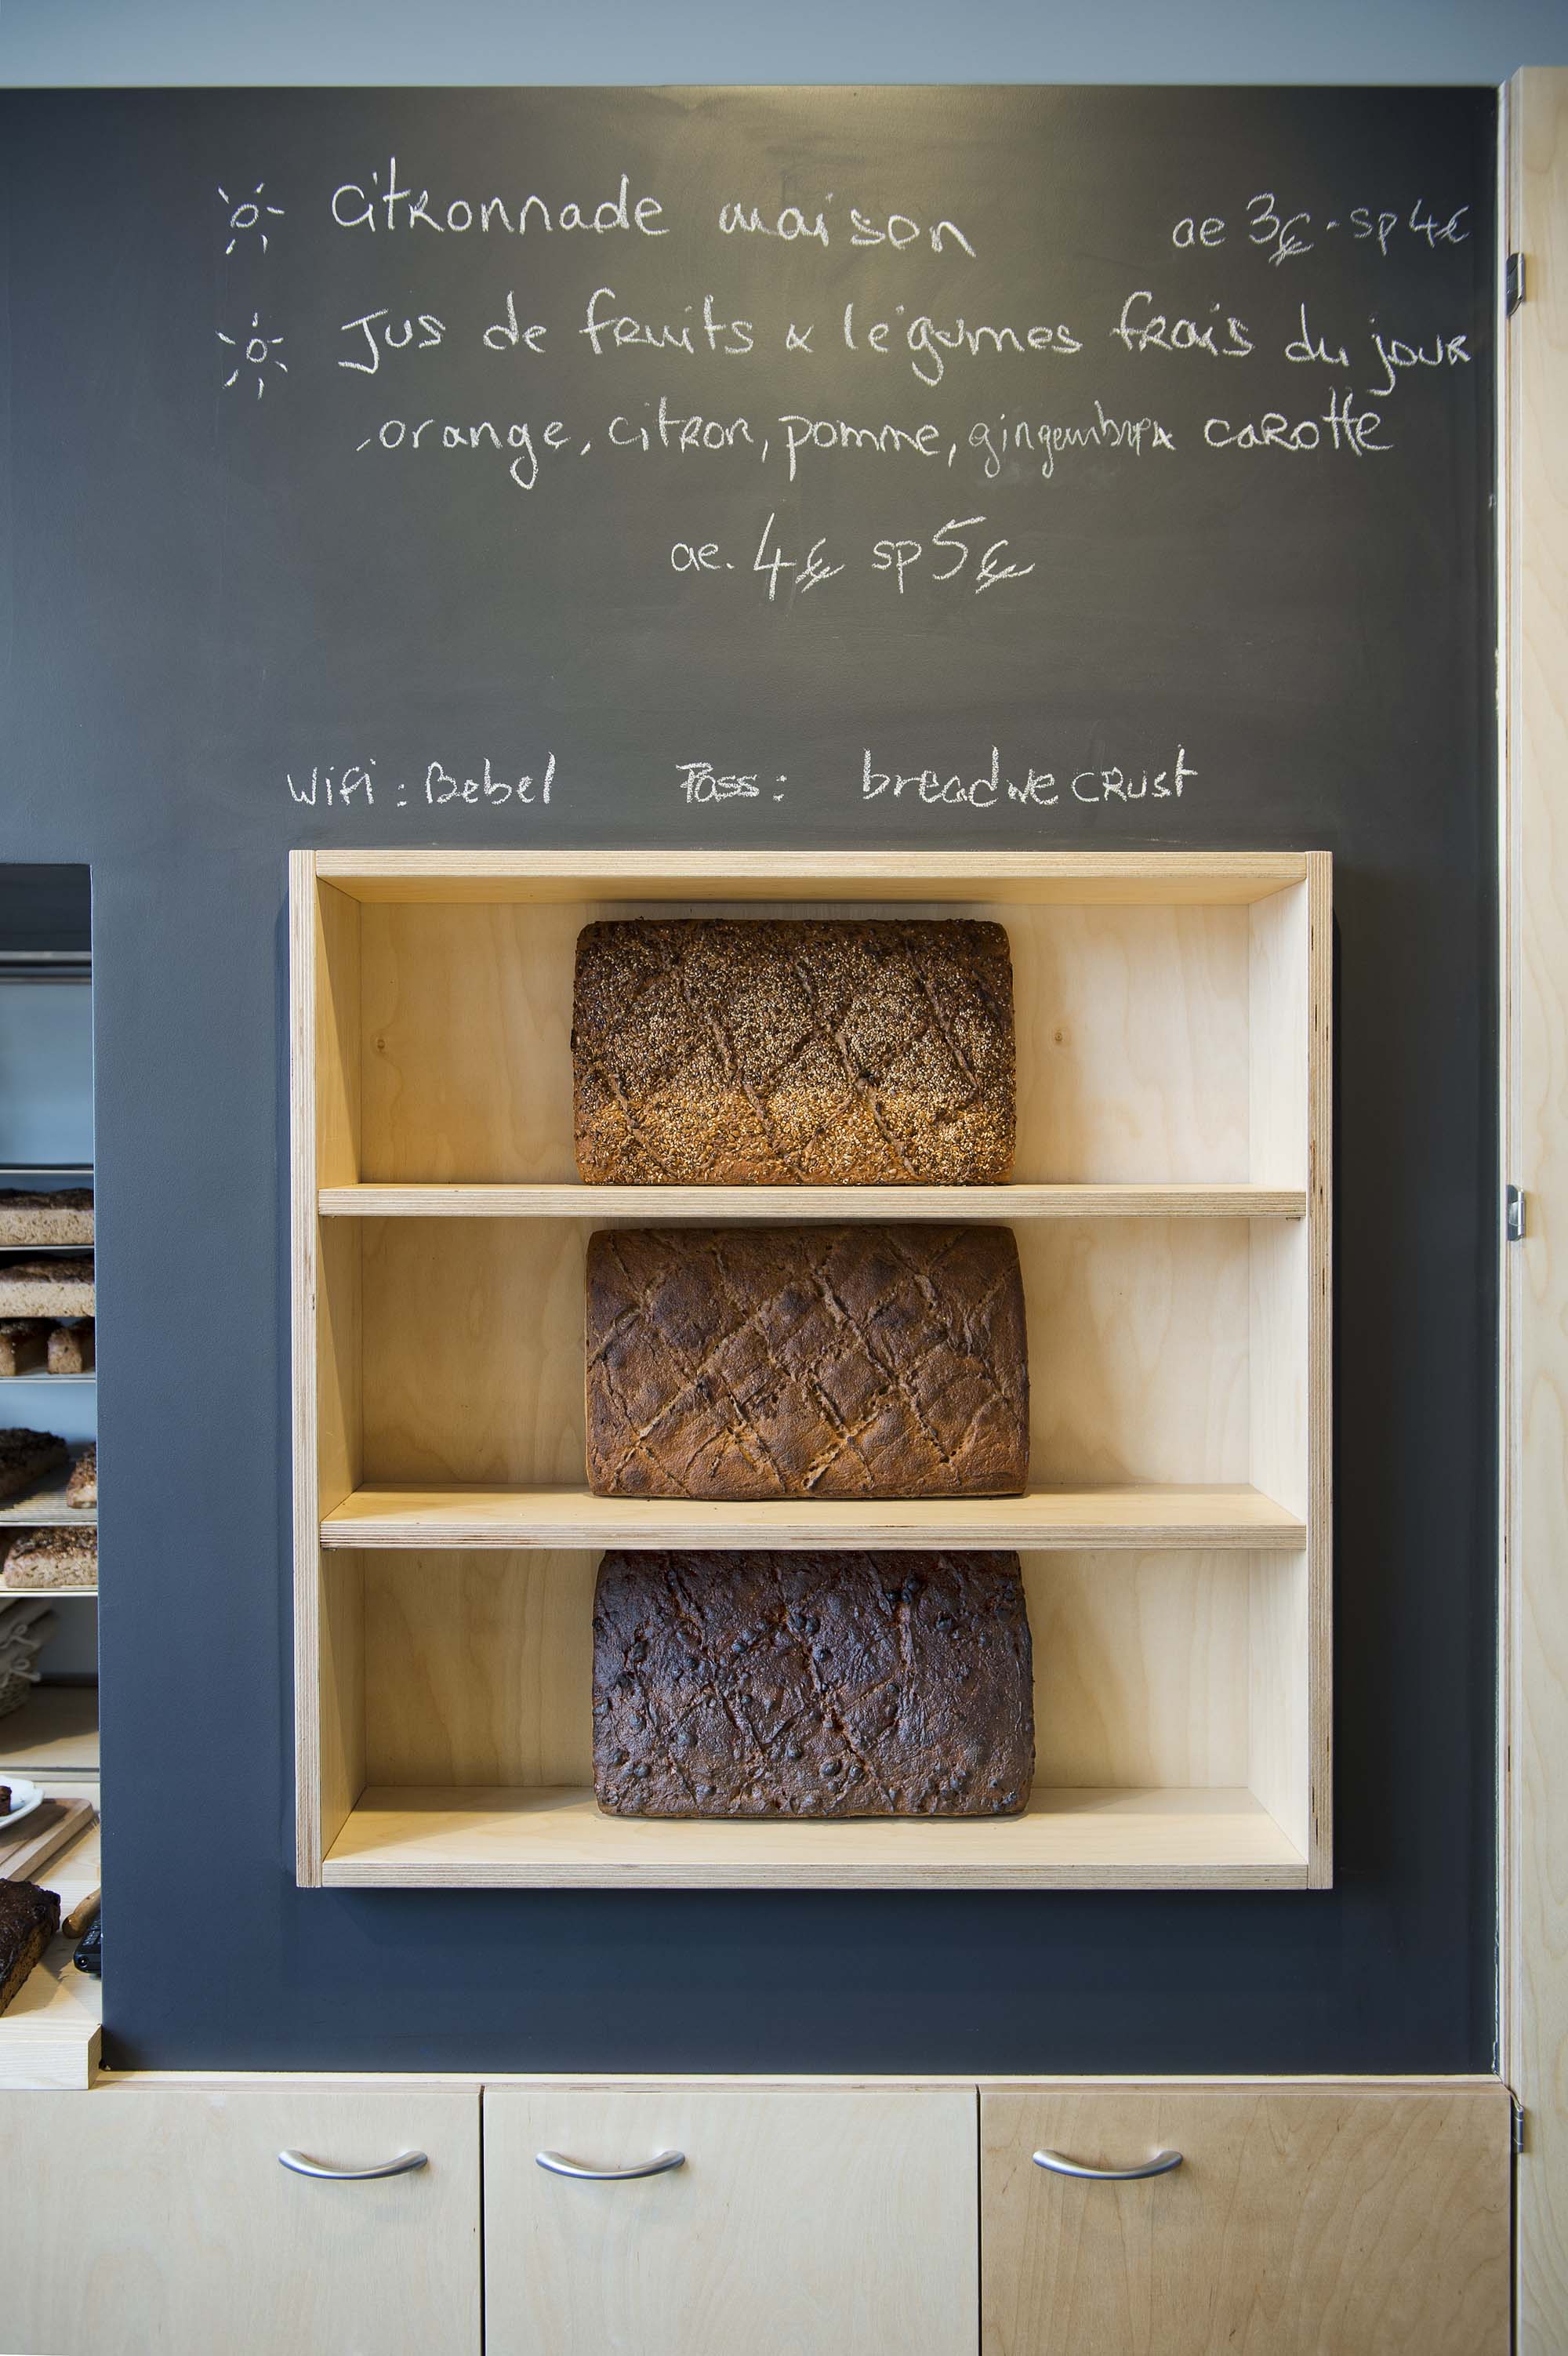 Citronnade maison ae 3€ - sp 4€
Jus de fruits & légumes frais du jour
orange, citron, pomme, gingembre & carotte
ae. 4€ sp 5€
Wifi : Bebel Pass : breadwecrust